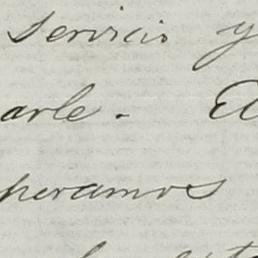 servicio y
arle. El
peramos